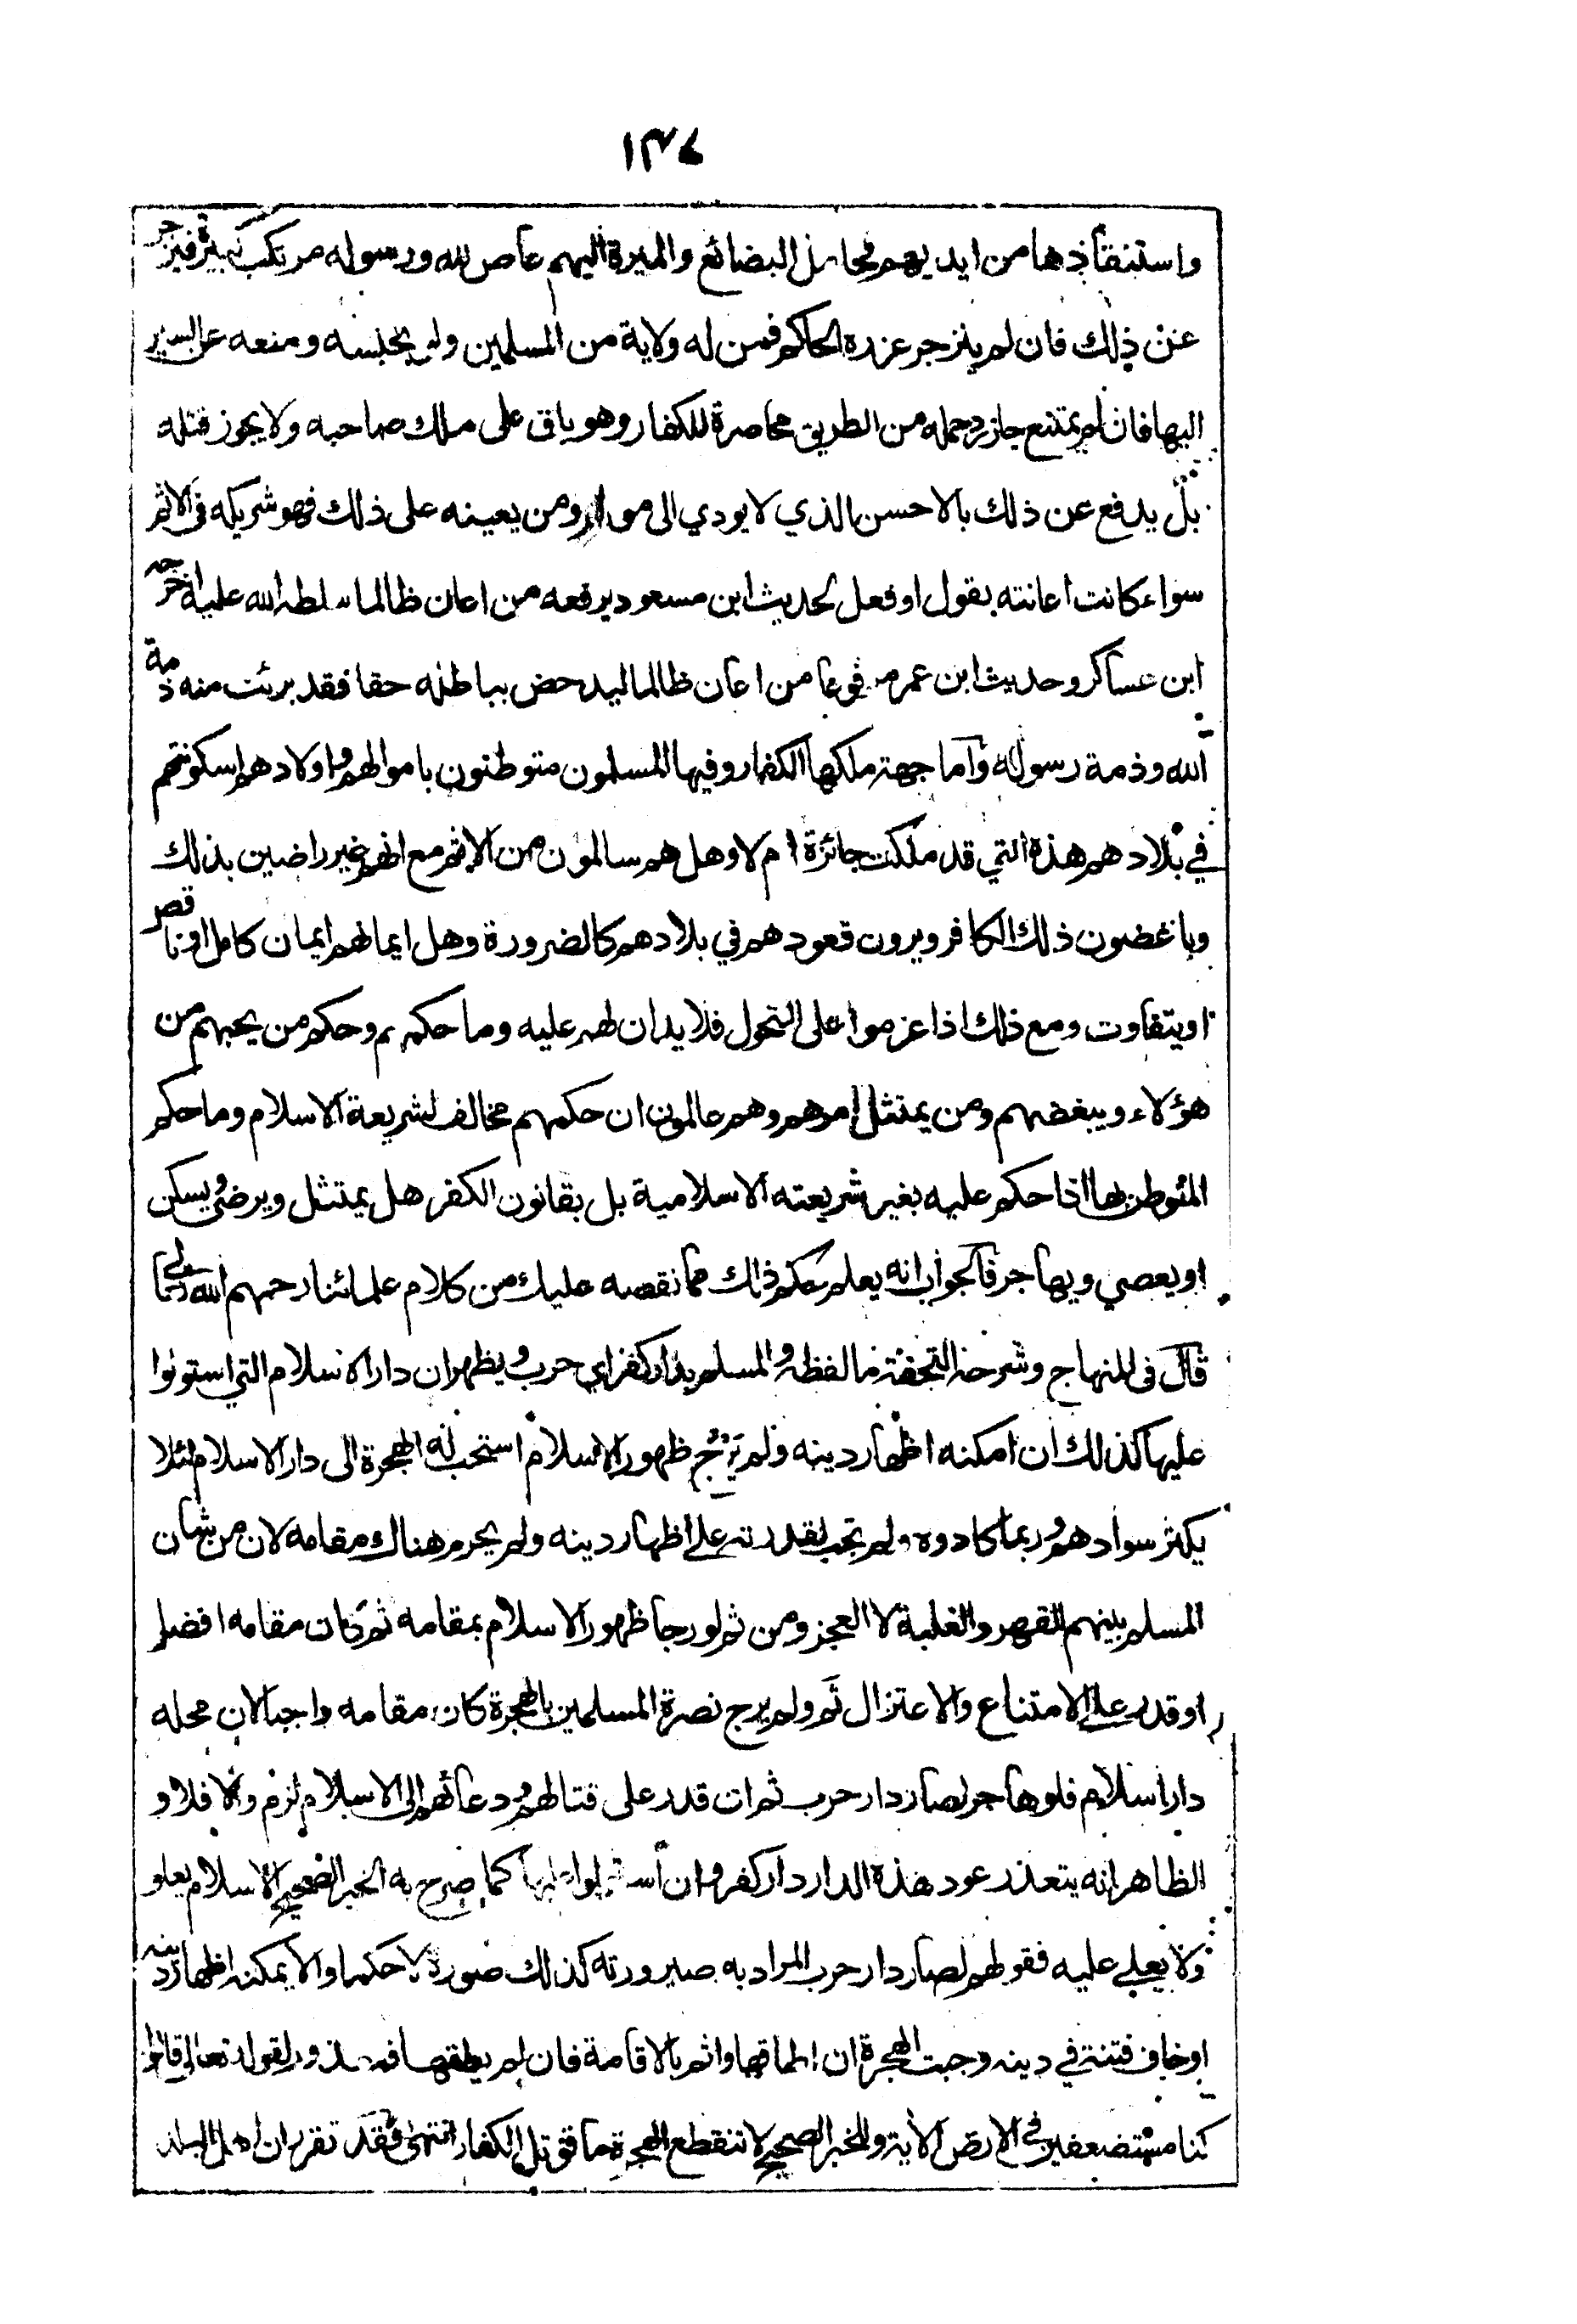 ١٣٧
واستنقاذها من ايديهم فحامل البضائع والميرة اليهم عاص لله ورسوله مرتكب كبيرة فيزجر
عن ذلك فان لم ينزجر عزره الحاكم فمن له ولاية من المسلمين ولو بحبسه ومنعه عن السير
اليها فان لم يمتنع جاز رد حمله من الطريق محاصرة للكفار وهو باق على ملك صاحبه ولا يجوز قتله
بل يدفع عن ذلك بالاحسن الذي لا يودي الى ومن يعينه على ذلك فهو شريكه فى الاثم
سواء كانت اعانته بقول او فعل لحديث ابن مسعود يرفعه من اعان ظالما سلطه الله عليه اخرجه
ابن عساكر وحديث ابن عمر مرفوعا من اعان ظالما ليدحض بباطله حقا فقد برئت منه ذمة
الله وذمة رسوله واما جهة ملكها الكفار وفيها المسلمون متوطنون باموالهم واولادهم اسكونتهم
في بلادهم هذه التي قد ملكت جائزة ام لا وهل هم سالمون من الاثم مع انهم غير راضين بذلك
وباغضون ذلك الكافر ويرون قعودهم في بلادهم كالضرورة وهل ايمانهم ايمان كامل او ناقص
او يتفاوت ومع ذلك اذا عزموا على التحول فلا يدان لهم عليه وما حكمهم وحكم من يحبهم من
هؤلاء ويبغضهم ومن يمتثل امرهم وهم عالمون ان حكمهم مخالف لشريعة الاسلام وما حكم
المتوطن بها اذا حكم عليه بغير شريعته الاسلامية بل بقانون الكفر هل يمتثل ويرضى ويسكن
او يعصي ويهاجر فالجواب انه يعلم حكم ذلك مما نقصه عليك من كلام علمائنا رحمهم الله تعالى
قال فى المنهاج وشرحه التحفة ما لفظه والمسلم بدار كفر اي حرب ويظهر ان دار الاسلام التي استولوا
عليها كذلك ان امكنه اظهار دينه ولم يرج ظهور الاسلام استحب له الهجرة الى دار الاسلام لئلا
يكثر سوادهم وربما كادوه ولم تجب لقدرته على اظهار دينه ولم يحرم هناك مقامه لان من شان
المسلم بينهم القهر والغلبة لا العجز ومن ثم لو رجا ظهور الاسلام بمقامه ثم كان مقامه افضل
او قدر على الامتناع والاعتزال ثم ولم يرج نصرة المسلمين بالهجرة كان مقامه واجبا لان محله
دار اسلام فلو هاجر لصار دار حرب ثم ان قدر على قتالهم ودعائهم الى الاسلام لزم والا فلا و
الظاهر انه يتعذر عود هذه الدار دار كفر وان استولوا عليها كما صرح به الخبر الصحيح الاسلام يعلو
ولا يعلى عليه فقولهم لصار دار حرب المراد به صيرورته كذلك صورة لا حكما والا يمكنه اظهار دينه
او خاف فتنة في دينه وجبت الهجرة ان اطاقها واثم بالاقامة فان لم يطقها فمعذور لقوله تعالى قالوا
كنا مستضعفين في الارض الآية وللخبر الصحيح لا تنقطع الهجرة ما قوتل الكفار انتهى فقد تقرر ان اهل البلد